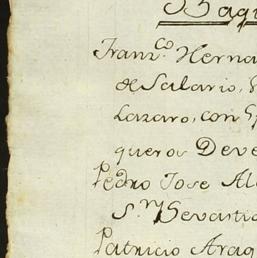 Baq
Franco. Herna
de Salario, 
Lazaro, con
queros Deve
Pedro Jose Al
Sn. Sevastia
Patricio Arag